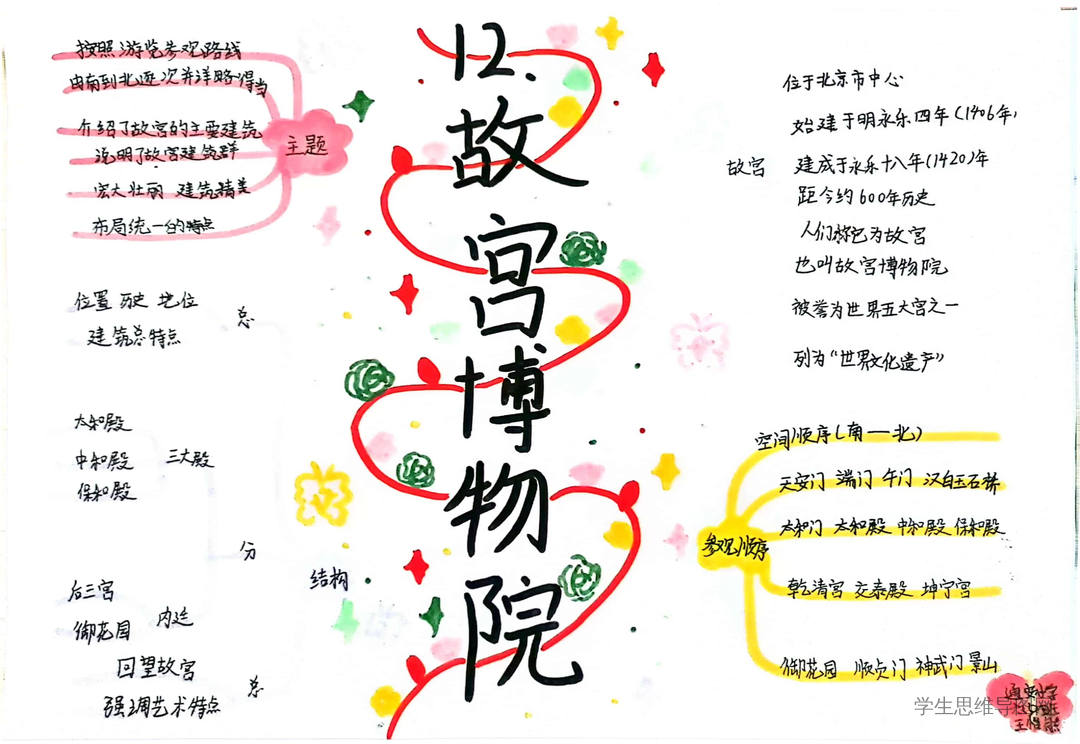 12.故宫博物院
主题
按照游览参观路线
由南到北逐次并详略得当
介绍了故宫的主要建筑
说明了故宫建筑群
宏大壮丽 建筑精美
布局统一的特点
结构
总
位置 历史 地位
建筑总特点
分
太和殿
中和殿
保和殿
三大殿
后三宫
御花园
内廷
总
回望故宫
强调艺术特点
故宫
位于北京市中心
始建于明永乐四年(1406年)
建成于永乐十八年(1420)年
距今约600年历史
人们称它为故宫
也叫故宫博物院
被誉为世界五大宫之一
列为“世界文化遗产”
参观顺序
空间顺序(南—北)
天安门 端门 午门 汉白玉石桥
太和门 太和殿 中和殿 保和殿
乾清宫 交泰殿 坤宁宫
御花园 顺贞门 神武门 景山
学生思维导图